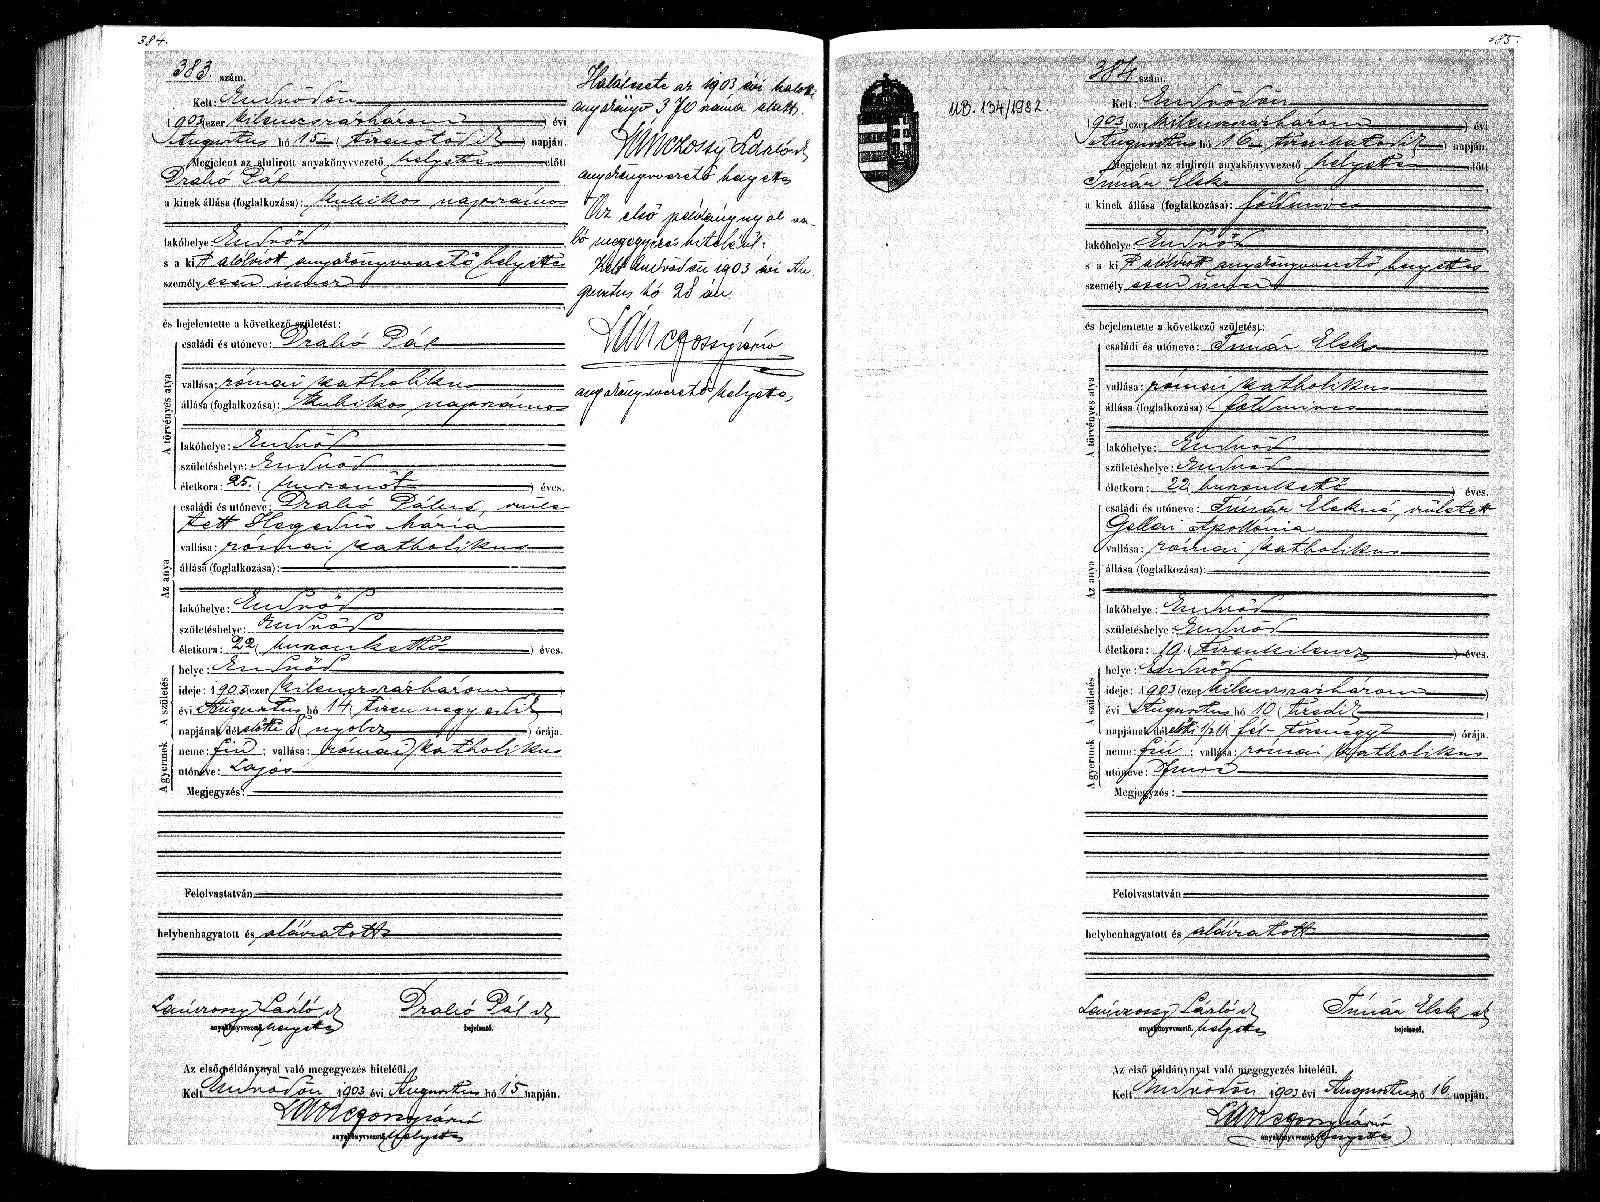 384.
383 szám.
Kelt: Endrődön
1903 (ezer kilencszázhárom) évi
Augusztus hó 15 (tizenötödik) napján.
Megjelent az alulirott anyakönyvvezető helyettes előtt
Drabó Pál
a kinek állása (foglalkozása): kubikos napszámos
lakóhelye Endrőd
s a kit alólirott anyakönyvvezető helyettes
személyesen ismer
és bejelentette a következő születést:
A törvényes atya
családi és utóneve: Drabó Pál
vallása: római katholikus
állása (foglalkozása): kubikos napszámos
lakóhelye: Endrőd
születéshelye: Endrőd
életkora: 25 (huszonöt) éves.
Az anya
családi és utóneve: Drabó Pálné, szüle-
tett Hegedüs Mária
vallása: római katholikus
állása (foglalkozása):
lakóhelye: Endrőd
születéshelye: Endrőd
életkora: 22 (huszonkettő) éves.
A születés
helye: Endrőd
ideje: 1903 (ezer kilencszázhárom)
évi Augusztus hó 14 (tizennegyedik)
napjának délelőtti 8 (nyolcz) órája.
A gyermek
neme: fiú; vallása: római katholikus
utóneve: Lajos
Megjegyzés:
Felolvastatván
helybenhagyatott és aláiratott
Lánczossy László sk
anyakönyvvezető. helyettes
Drabó Pál sk
bejelentő.
Az első példánynyal való megegyezés hiteléül.
Kelt Endrődön 1903 évi Augusztus hó 15 napján.
anyakönyvvezető helyettes
Halálesete az 1903 évi halotti
anyakönyv 370 száma alatt.
Lánczossy László sk
anyakönyvvezető helyettes
Az első példánynyal va-
ló megegyezés hiteléül:
Kelt Endrődön 1903 évi Au-
gusztus hó 28 án.
anyakönyvvezető helyettes
MB. 134/1982.
385.
384 szám.
Kelt: Endrődön
1903 (ezer kilencszázhárom) évi
Augusztus hó 16 (tizenhatodik) napján.
Megjelent az alulirott anyakönyvvezető helyettes előtt
Timár Elek
a kinek állása (foglalkozása): földmives
lakóhelye Endrőd
s a kit alólirott anyakönyvvezető helyettes
személyesen ismer
és bejelentette a következő születést:
A törvényes atya
családi és utóneve: Timár Elek
vallása: római katholikus
állása (foglalkozása): földmives
lakóhelye: Endrőd
születéshelye: Endrőd
életkora: 22 (huszonkettő) éves.
Az anya
családi és utóneve: Timár Elekné, született
Gellai Apollónia
vallása: római katholikus
állása (foglalkozása):
lakóhelye: Endrőd
születéshelye: Endrőd
életkora: 19 (tizenkilencz) éves.
A születés
helye: Endrőd
ideje: 1903 (ezer kilencszázhárom)
évi Augusztus hó 10 (tizedik)
napjának délelőtti órája.
A gyermek
neme: fiú; vallása: római katholikus
utóneve: Imre
Megjegyzés:
Felolvastatván
helybenhagyatott és aláiratott
Lánczossy László sk
anyakönyvvezető. helyettes
Timár Elek sk
bejelentő.
Az első példánynyal való megegyezés hiteléül.
Kelt Endrődön 1903 évi Augusztus hó 16 napján.
anyakönyvvezető helyettes